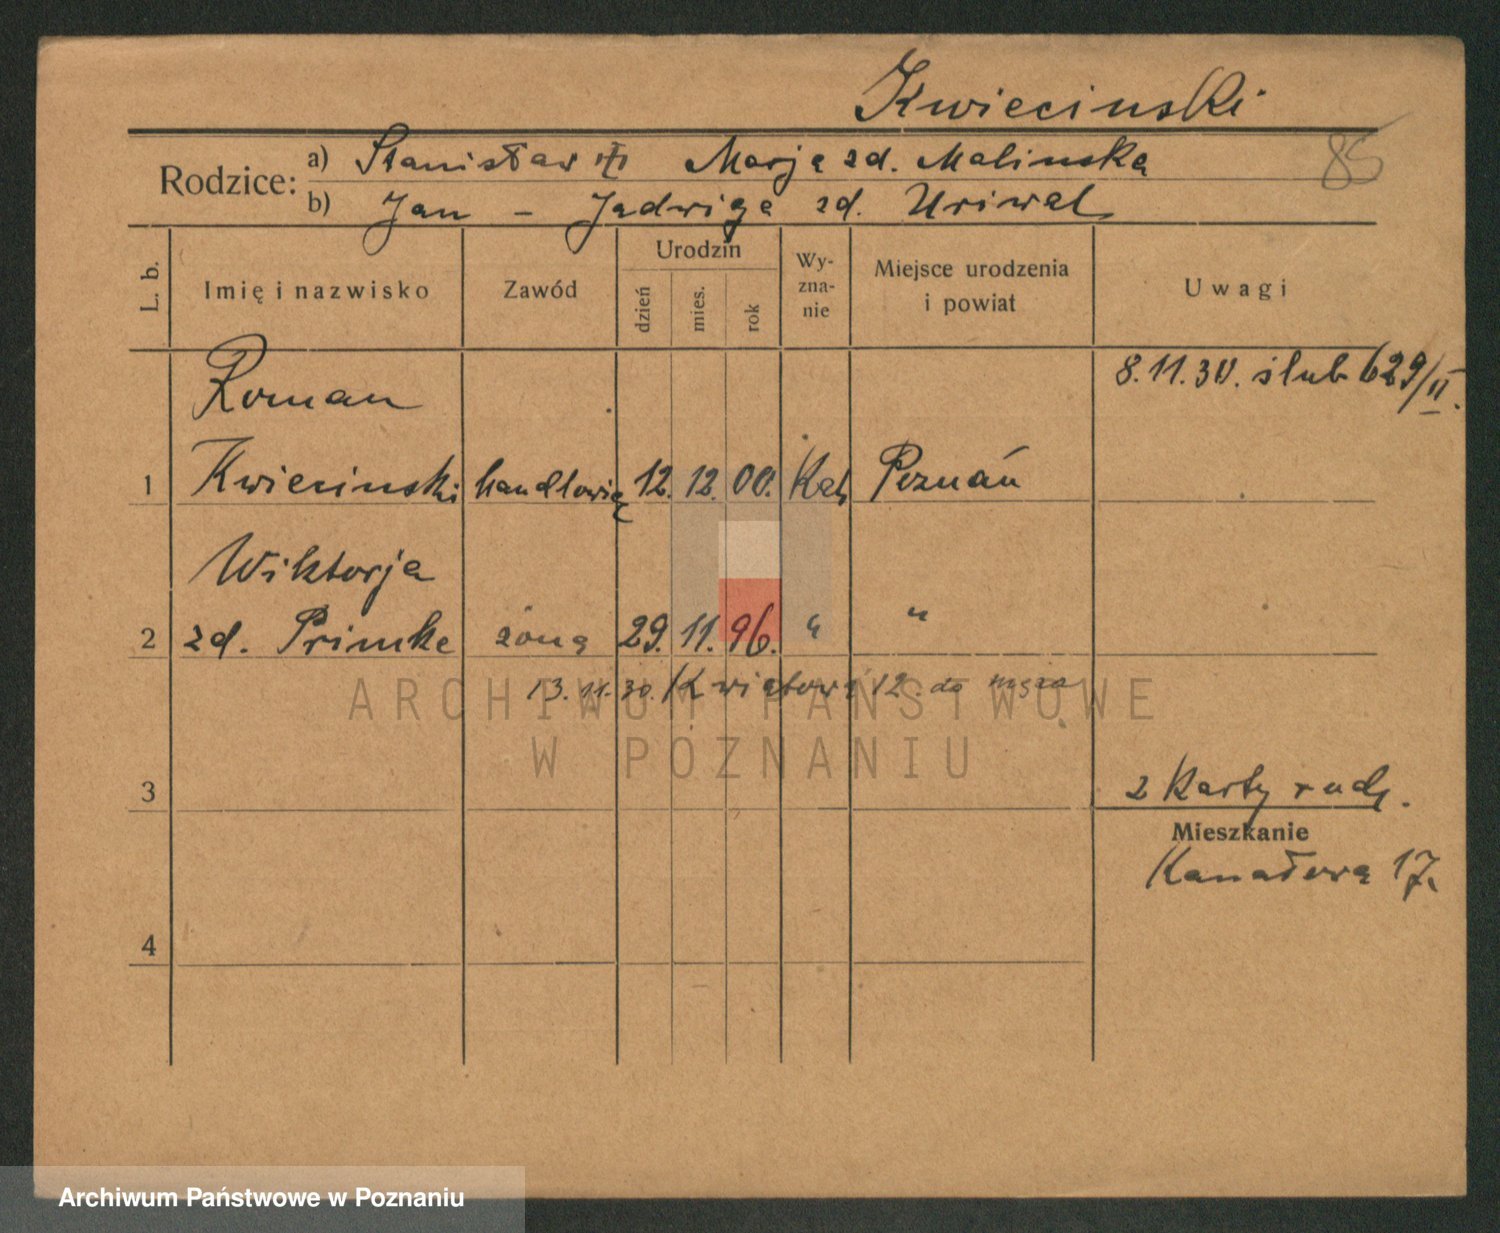 Kwiecinski
85
Rodzice: a) Stanisław Marja zd. Malinska
b) Jan - Jadwiga zd. Uriwal
L. b.
Imię i nazwisko
Zawód
Urodzin
dzień
mies.
rok
Wy-
zna-
nie
Miejsce urodzenia
i powiat
Uwagi
8.11.30. ślub 629/II.
Roman
1 Kwiecinski handlowią 12. 12. 00. Kat Poznań
Wiktorja
2 zd. Primke żona 29. 11. 96. " "
13.11.30. Kwiatowa 12. do męża
ARCHIWUM PAŃSTWOWE
W POZNANIU
2 Karty rodz.
3
Mieszkanie
Kanałowa 17.
4
Archiwum Państwowe w Poznaniu